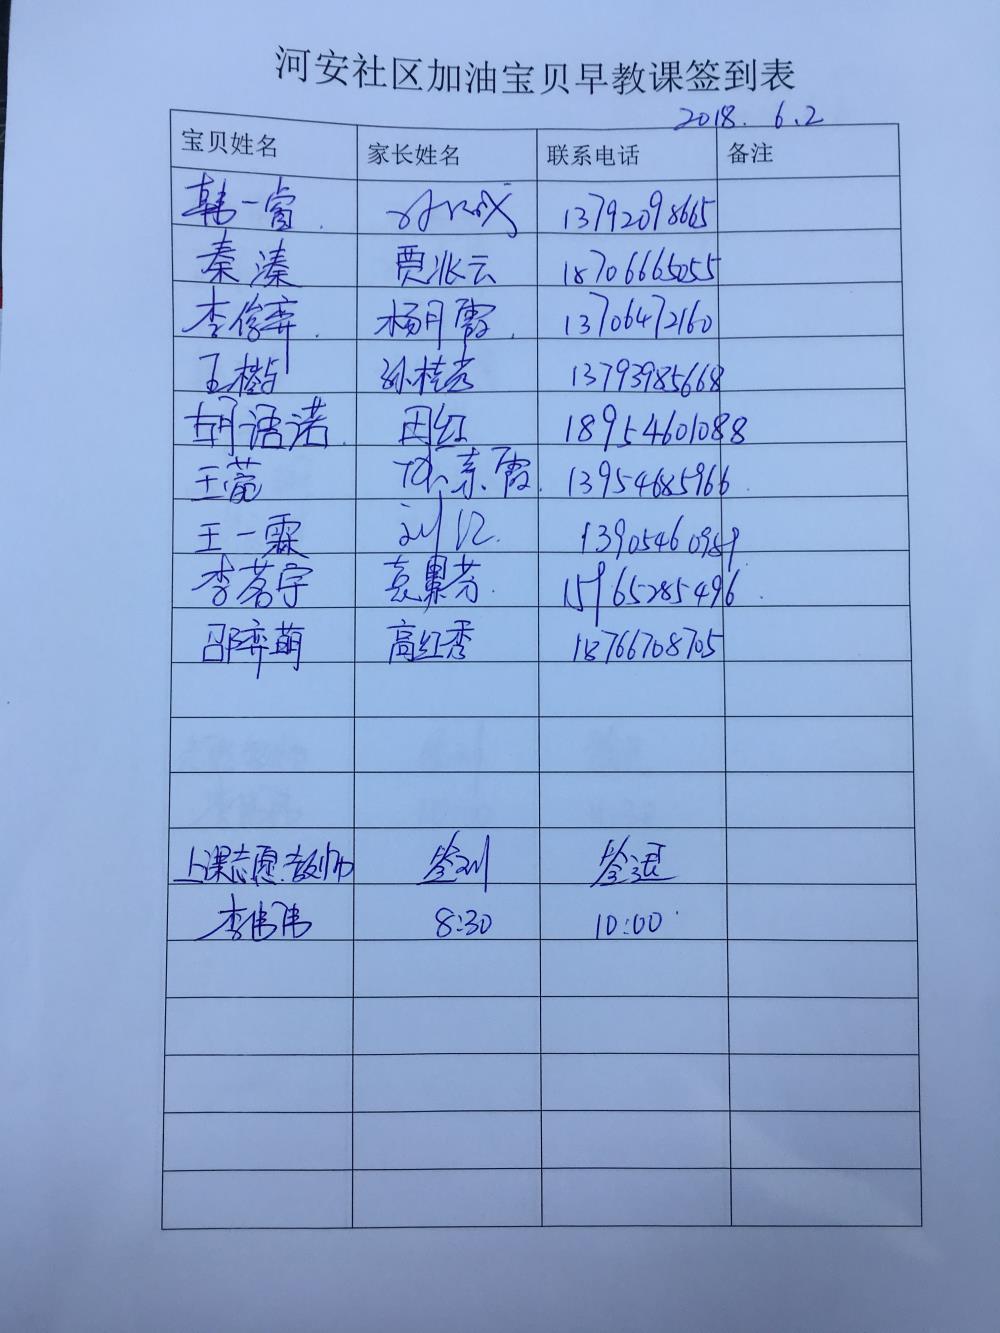 河安社区加油宝贝早教课签到表
2018. 6.2
宝贝姓名 家长姓名 联系电话 备注
韩一睿 13792098665
秦溱 贾兆云 18706665055
李俊弈 杨月霞 13706472160
王 孙桂秀 13793985668
胡语诺 田红 18954601088
王 霞 13954685966
王一霖 刘 13905460989
李茗宇 袁翠芳 15965285496
邵弈萌 高红秀 18766708705
上课志愿教师 签到 签退
李伟伟 8:30 10:00